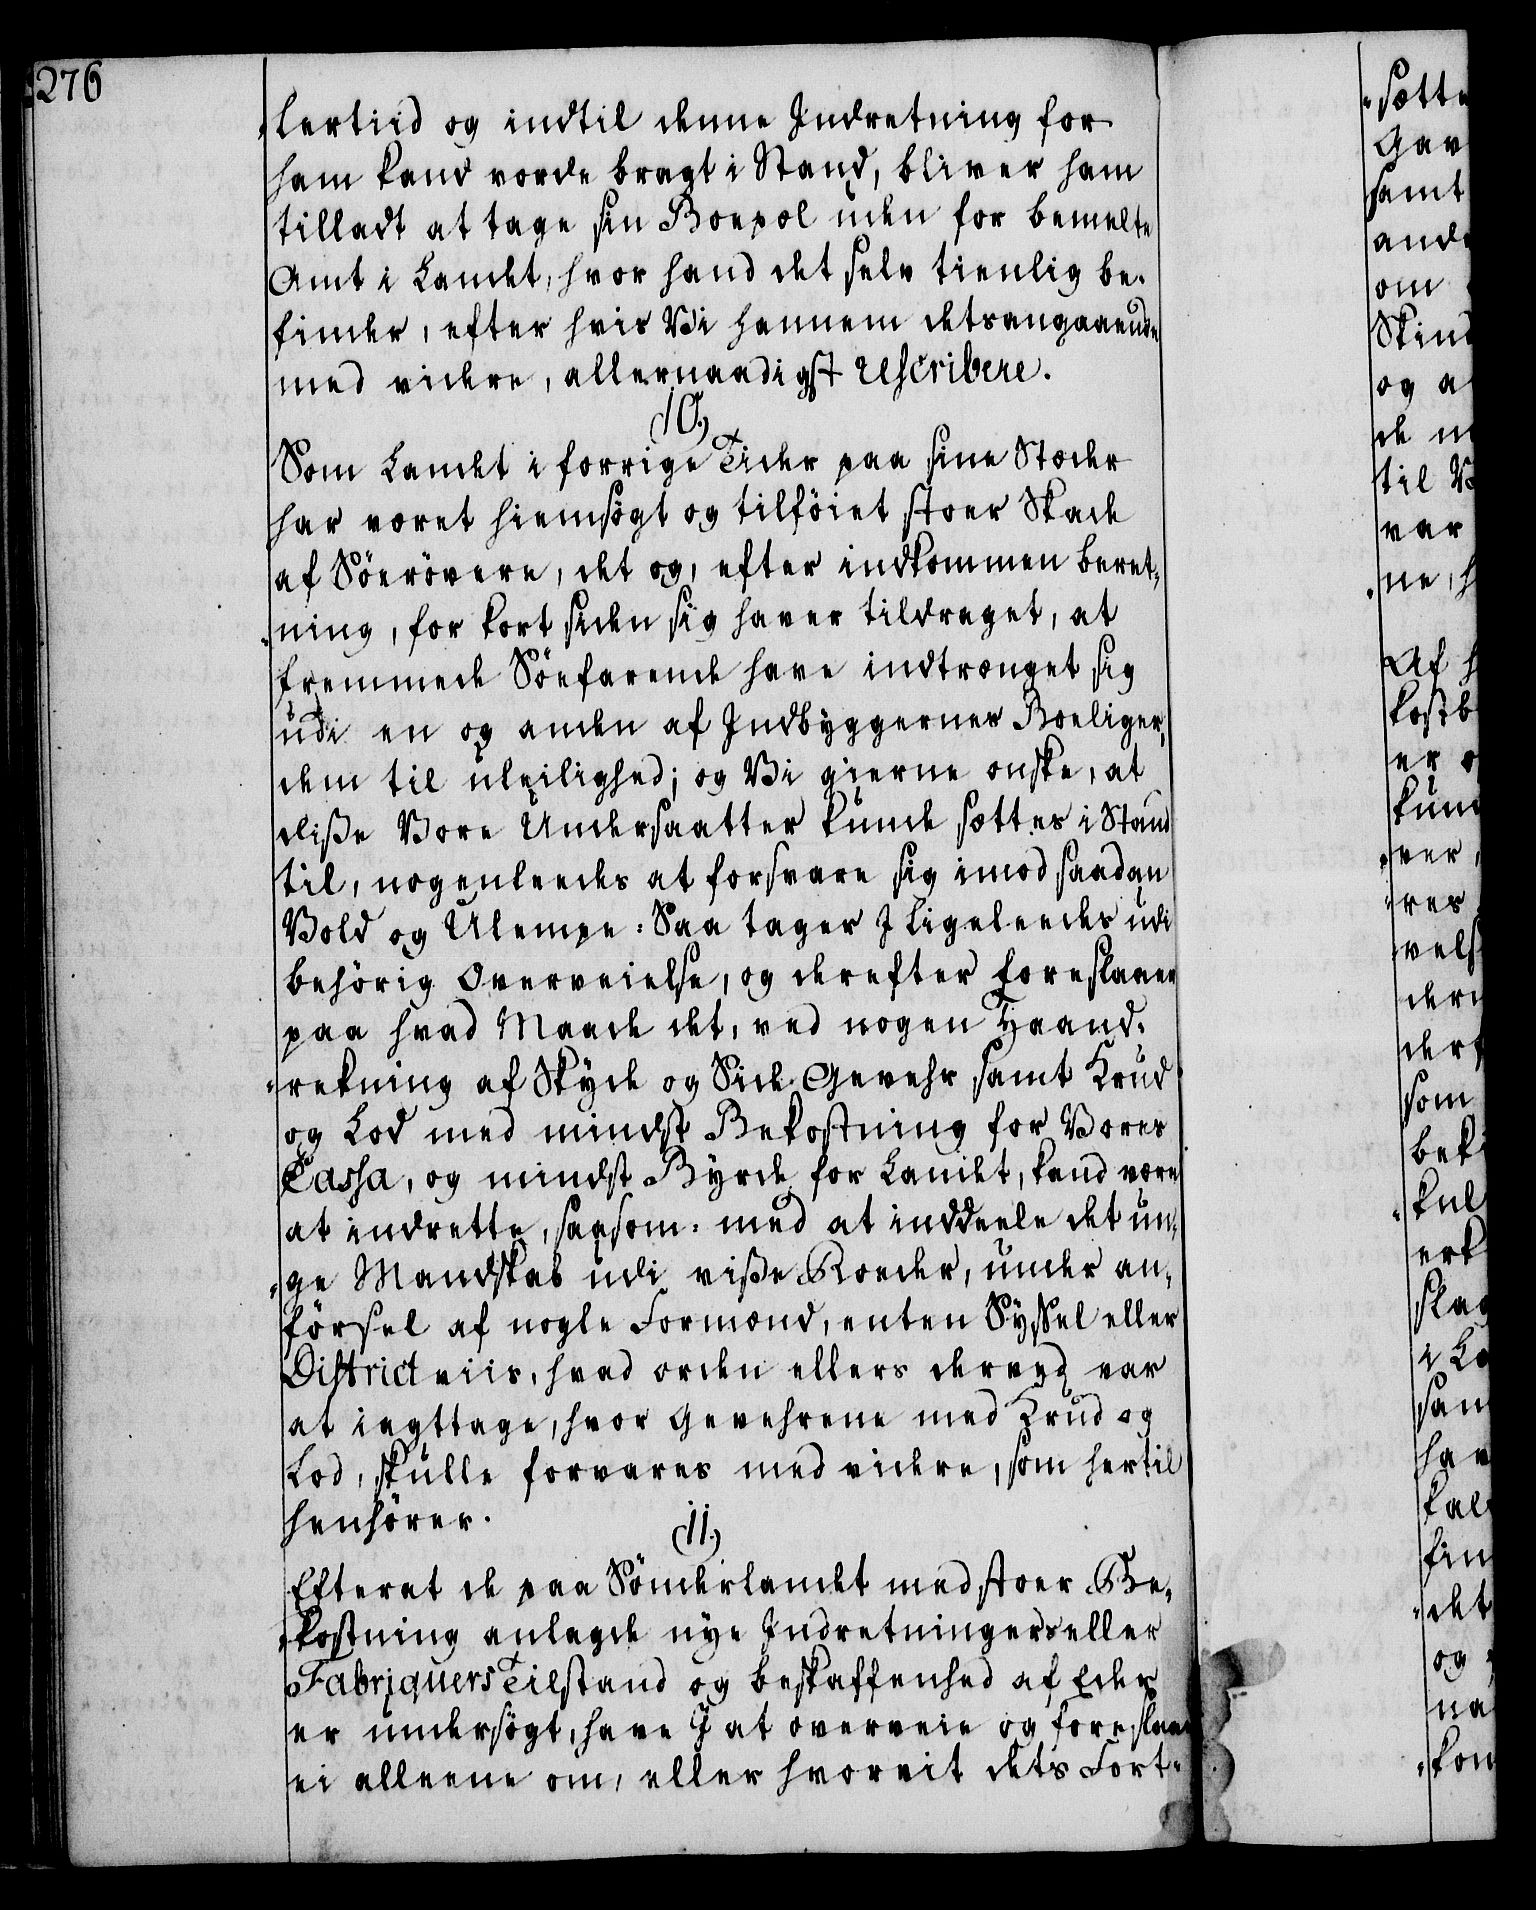 276
„lertiid og indtil denne Indretning for
ham kand vorde bragt i Stand, bliver ham
tilladt at tage sin Boepæl uden for bemelte
Amt i Landet, hvor hand det selv tienlig be-
finder, efter hvis Vi hannem detsangaaende
med videre, allernaadigst rescribere.
10.)
Som Landet i forrige Tider paa sine Stæder
har været hiemsögt og tilföiet stoer Skade
af Söerövere, det og, efter indkommen beret-
„ning, for kort siden sig haver tildraget, at
fremmede Söefarende have indtrænget sig
udi en og anden af Indbyggernes Boeliger,
dem til uleilighed; og Vi gierne ønske, at
disse Vore Undersaatter kunde sættes i Stand
til, nogenleedes at forsvare sig imod saadan
Vold og Ulempe: Saa tager I ligeleedes udi
behörig Overveielse, og derefter foreslaaer
paa hvad Maade det, ved nogen Haand-
„rekning af Skyde og Side-Gevehr samt Krud
og Lod med mindst Bekostning for Vores
Cassa, og mindst Byrde for Landet, kand være
at indrette, saasom: med at inddeele det un-
„ge Mandskab udi visse Roeder, under an-
försel af nogle Formænd, enten Syssel eller
District viis, hvad orden ellers derved var
at iagttage, hvor Gevehrene med Krud og
Lod, skulle forvares med videre, som hertil
henhörer.
11.)
Efterat de paa Sönderlandet med stoer Be-
„kostning anlagde nye Indretningers eller
Fabriquers Tilstand og beskaffenhed af Eder
er undersögt, have I at overveie og foreslaae
ei alleene om, eller hvorvit dets Fort-
„sætte
Gav
samt
ande
om
Skind
og a
de m
til V
var
„ne, h
Af h
kostb
er o
kund
„ver,
„res
vels
der
derf
som
bek
„kul
erk
slag
i La
sam
hav
kal
fin
„det
og
na
„kom